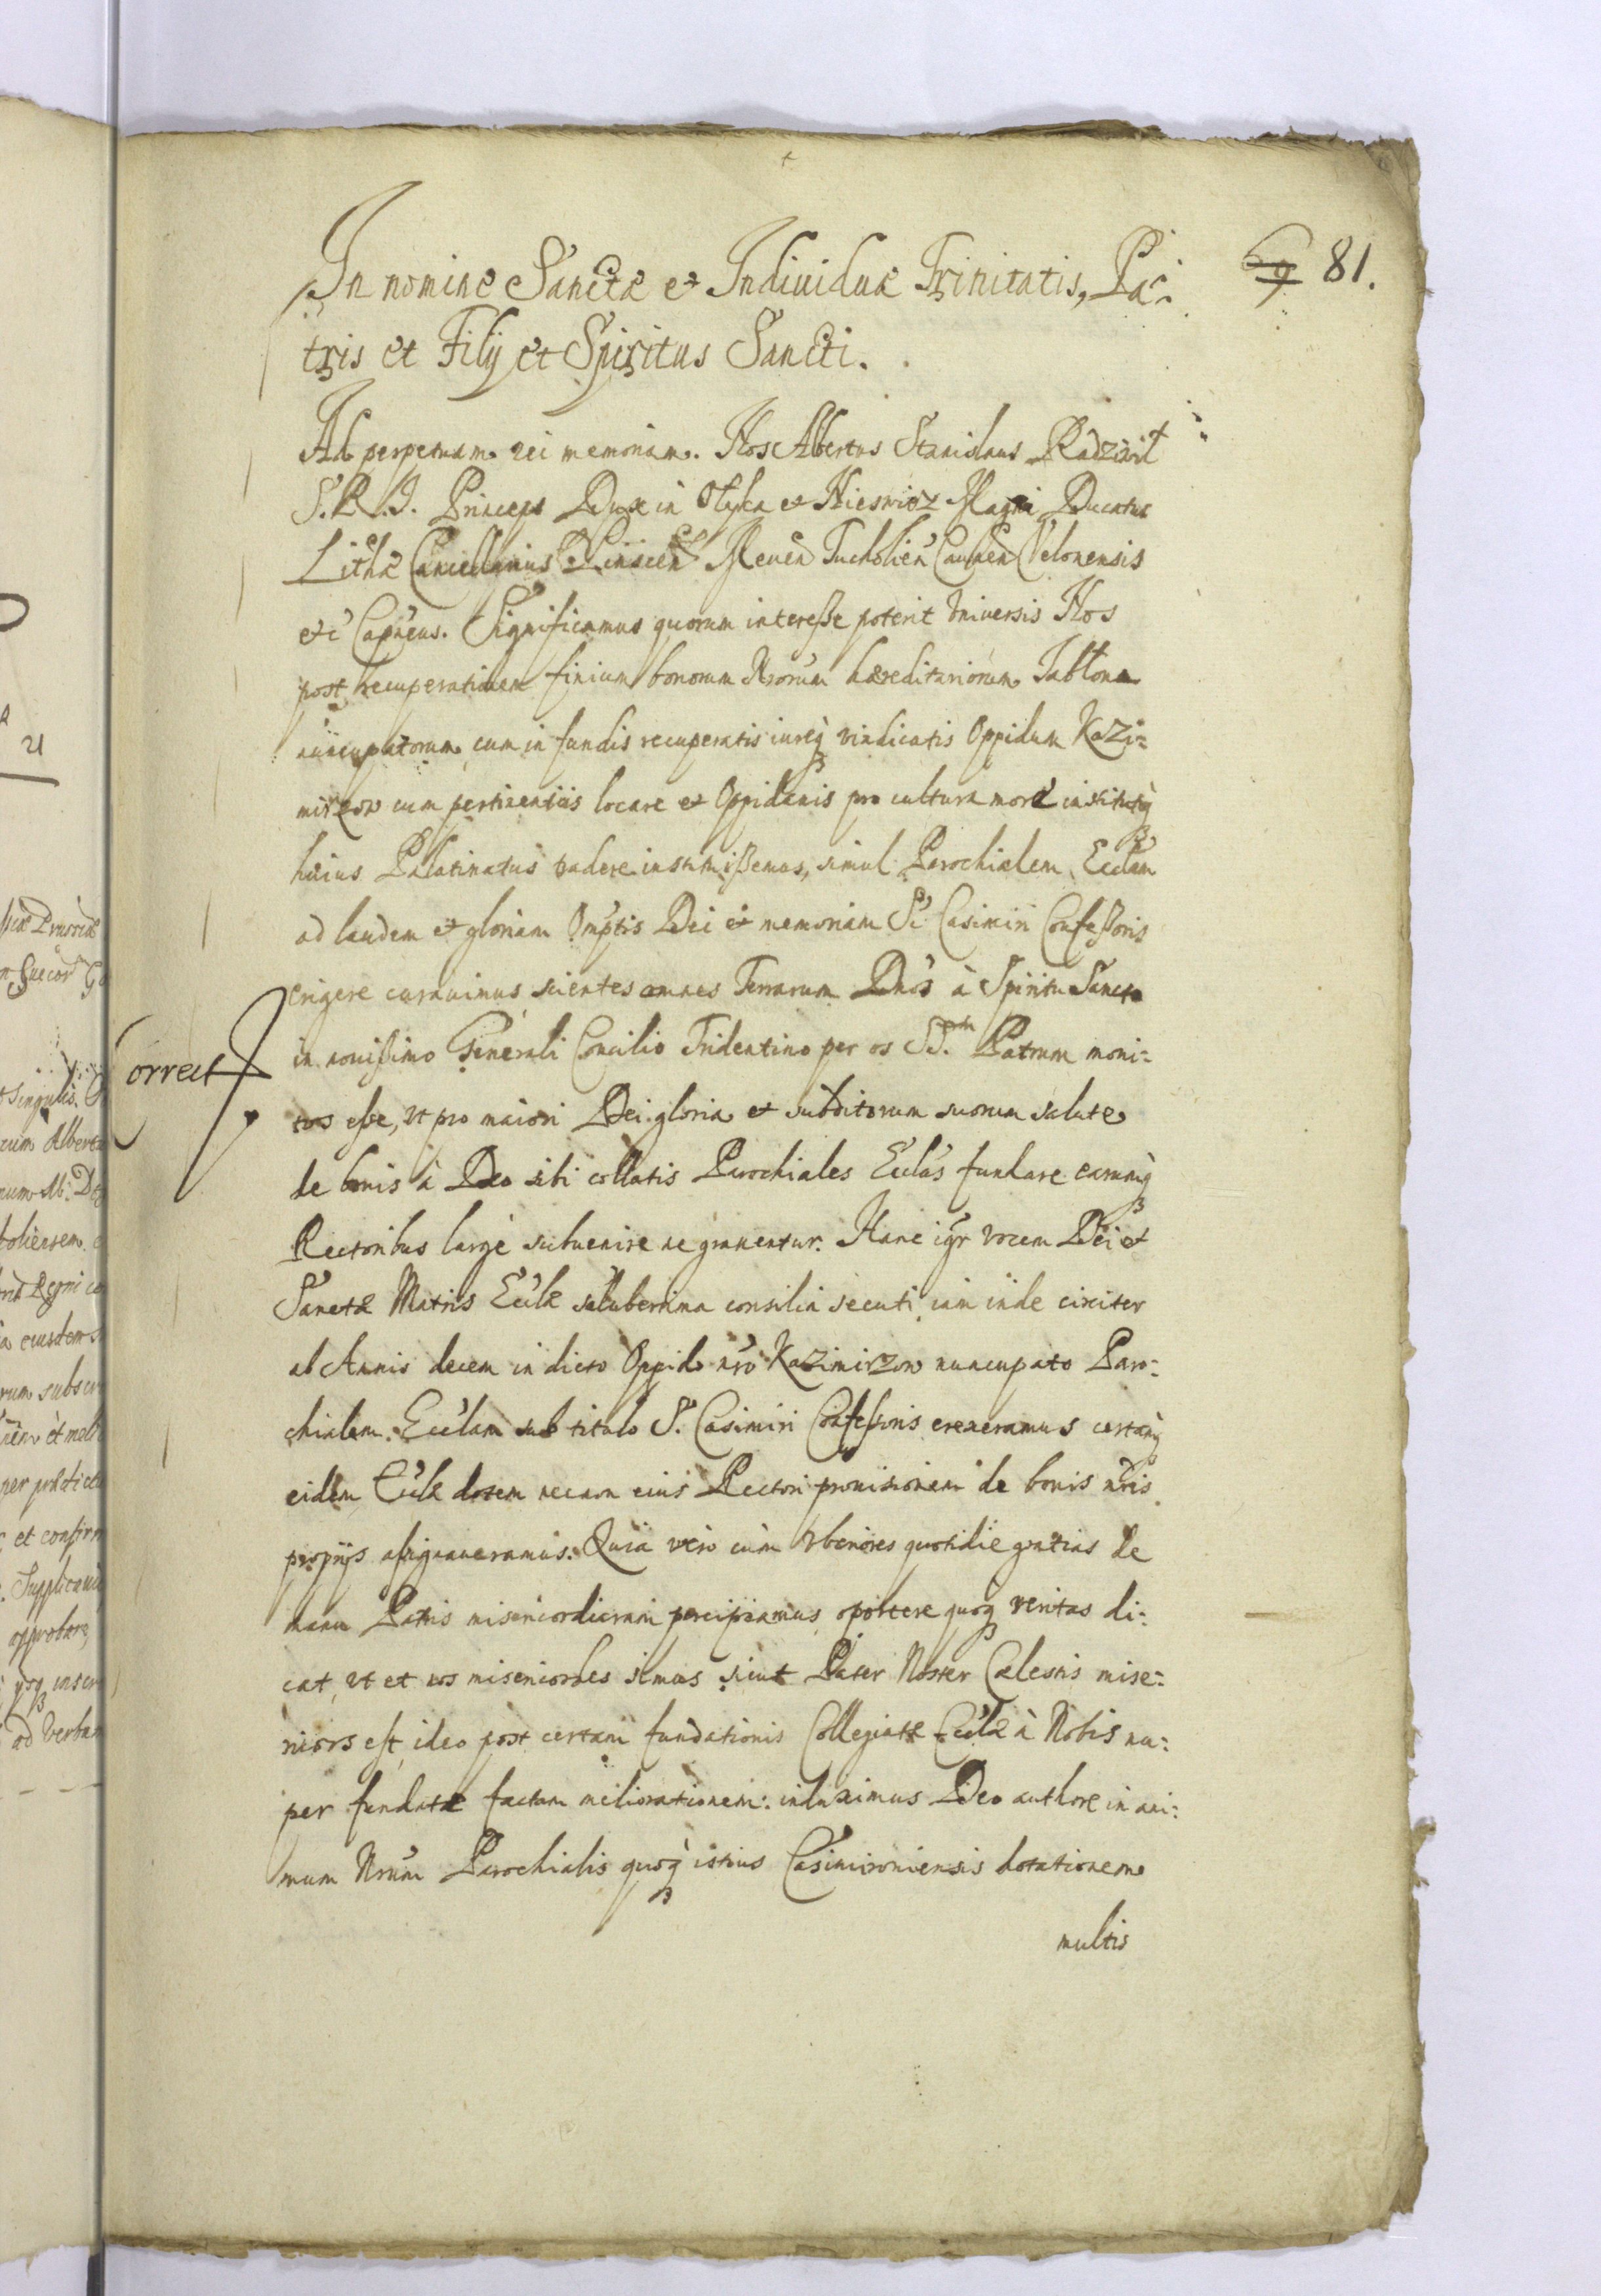 69 81.
In nomine Sanctæ et Indiuiduæ Trinitatis, Pa=
tris et Filij et Spiritus Sancti.
Ad perpetuam rei memoriam. Nos Albertus Stanislaus Radziwił
S. R. I. Princeps Dux in Olyka et Nieswież Magni Ducatus
Lithæ Cancellarius Pinscen̄ Meuen̄ Tucholien̄ Caunen̄ Velonensis
etc̄ Capn̄eus. Significamus quorum interesse poterit Vniuersis Nos
post recuperationem finium bonorum Nr̄orum hæreditariorum Jabłona
nuncupatorum cum in fundis recuperatis iureq́ꝫ vindicatis Oppidum Kazi=
mirzow cum pertinentiis locare et Oppidanis pro cultura more institutoq́ꝫ
huius Palatinatus tradere instituissemus, simul Parochialem Eccl̄am
ad laudem et gloriam Omp̄tis Dei et memoriam Sc̄i Casimiri Confessoris
erigere curauimus scientes omnes Terrarum Dn̄os à Spiritu Sancto
Correct
in nouissimo Generali Concilio Tridentino per os SS.m Patrum moni=
tos esse, vt pro maiori Dei gloria et subditorum suorum salute
de bonis à Deo sibi collatis Parochiales Eccl̄as fundare earumq́ꝫ
Rectoribus largè subuenire ne grauentur. Hanc igr̄ vocem Dei et
Sanctæ Matris Eccl̄æ saluberrima consilia secuti iam inde circiter
ab Annis decem in dicto Oppido nr̄o Kazimirzow nuncupato Paro=
chialem Eccl̄am sub titulo S. Casimiri Confessoris erexeramus certamq́ꝫ
eidem Eccl̄æ dotem necnon eius Rectori prouisionem de bonis nr̄is
proprijs assignaueramus. Quia vero cùm vberiores quotidie gratias de
manu Patris misericordiarum percipiamus oportere quoqꝫ veritas di=
cat, vt et nos misericordes simus sicut Pater Noster Cælestis mise=
ricors est, ideo post certam fundationis Collegiatæ Eccl̄æ à Nobis nu=
per fundatæ factam meliorationem: induximus Deo authore in ani=
mum Nr̄um Parochialis quoq́ꝫ istius Casimiroviensis dotationem
multis